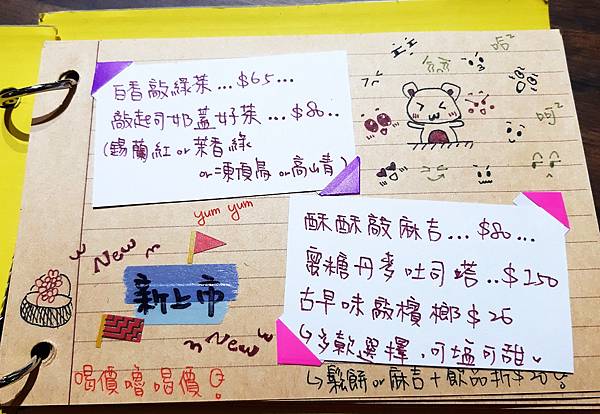 百香敲綠茶...$65...
敲起司奶蓋好茶...$80..
(錫蘭紅 or 茉香綠
or 凍頂烏 or 高山青)
哈²
呵²
yum yum
New
新上市
New
酥酥敲麻吉...$80...
蜜糖丹麥吐司塔...$150
古早味敲檳榔$25
↳多款選擇,可塩可甜。
↳鬆餅 or 麻吉+飲品折$20!